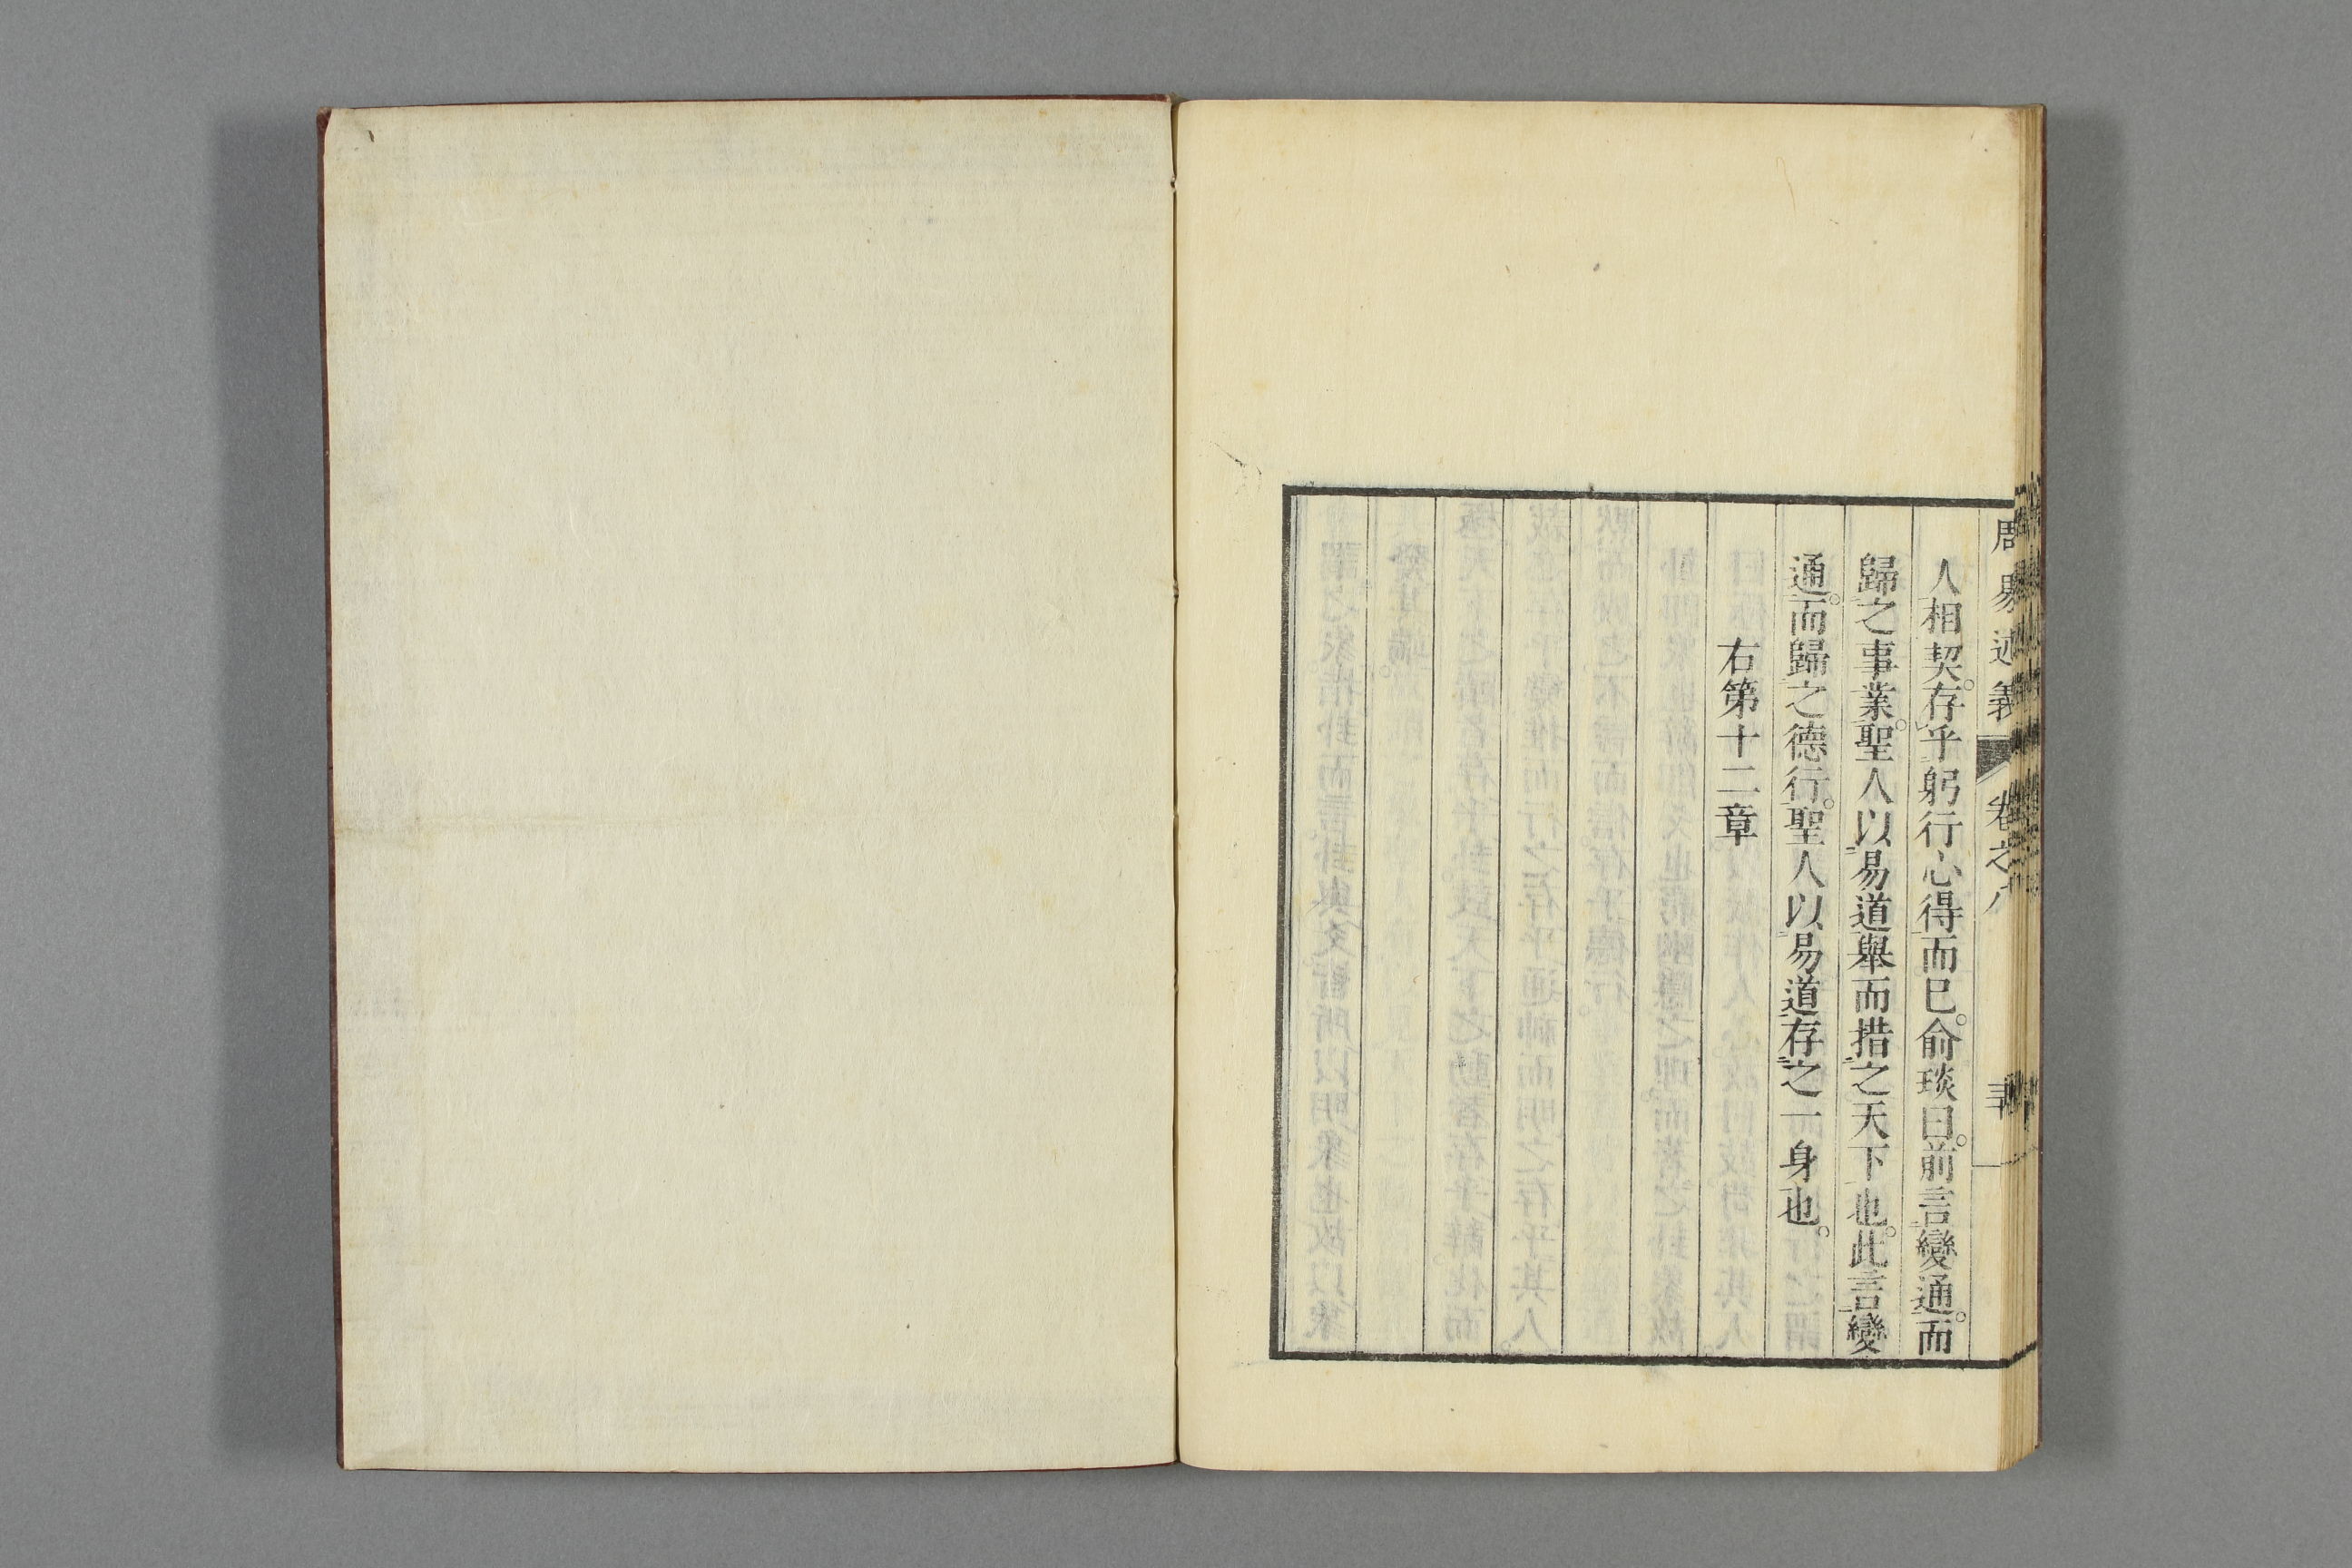 周易述義 卷之八
人相契。存乎躬行心得而已。俞琰曰。前言變通。而
歸之事業。聖人以易道舉而措之天下也。此言變
通。而歸之德行。聖人以易道存之一身也。
右第十二章